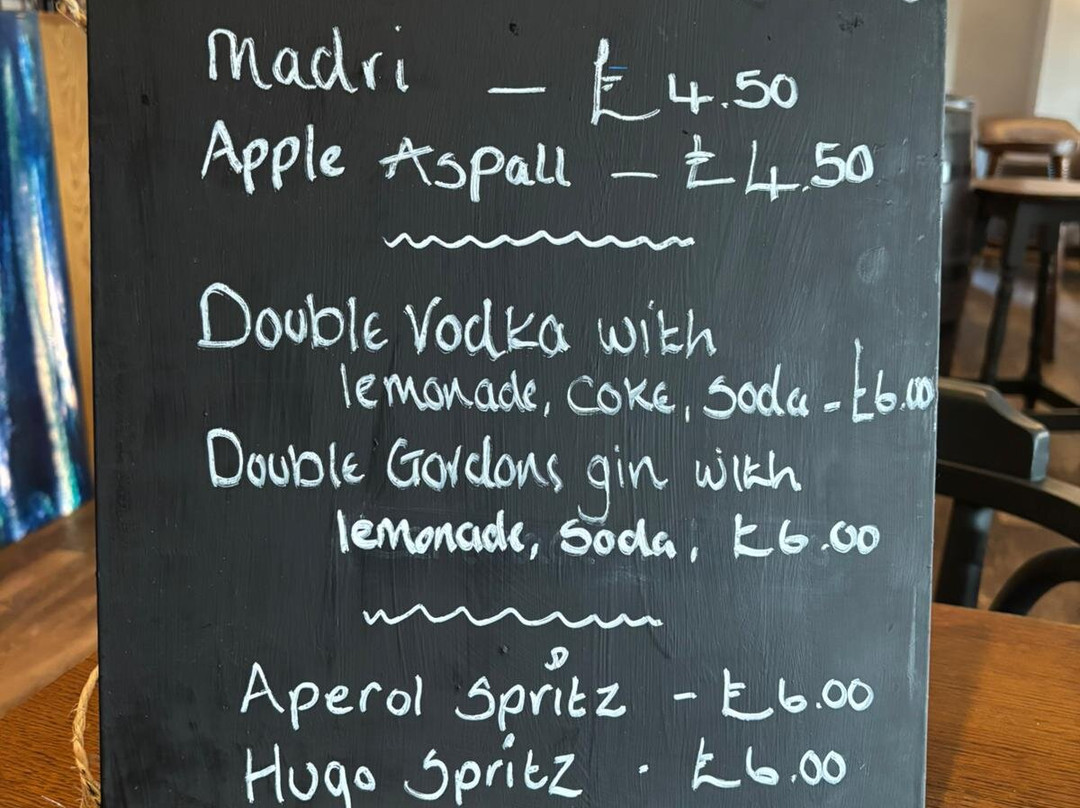 Madri — £4.50
Apple Aspall — £4.50
Double Vodka with
lemonade, coke, soda - £6.00
Double Gordons gin with
lemonade, soda, £6.00
Aperol Spritz - £6.00
Hugo Spritz . £6.00